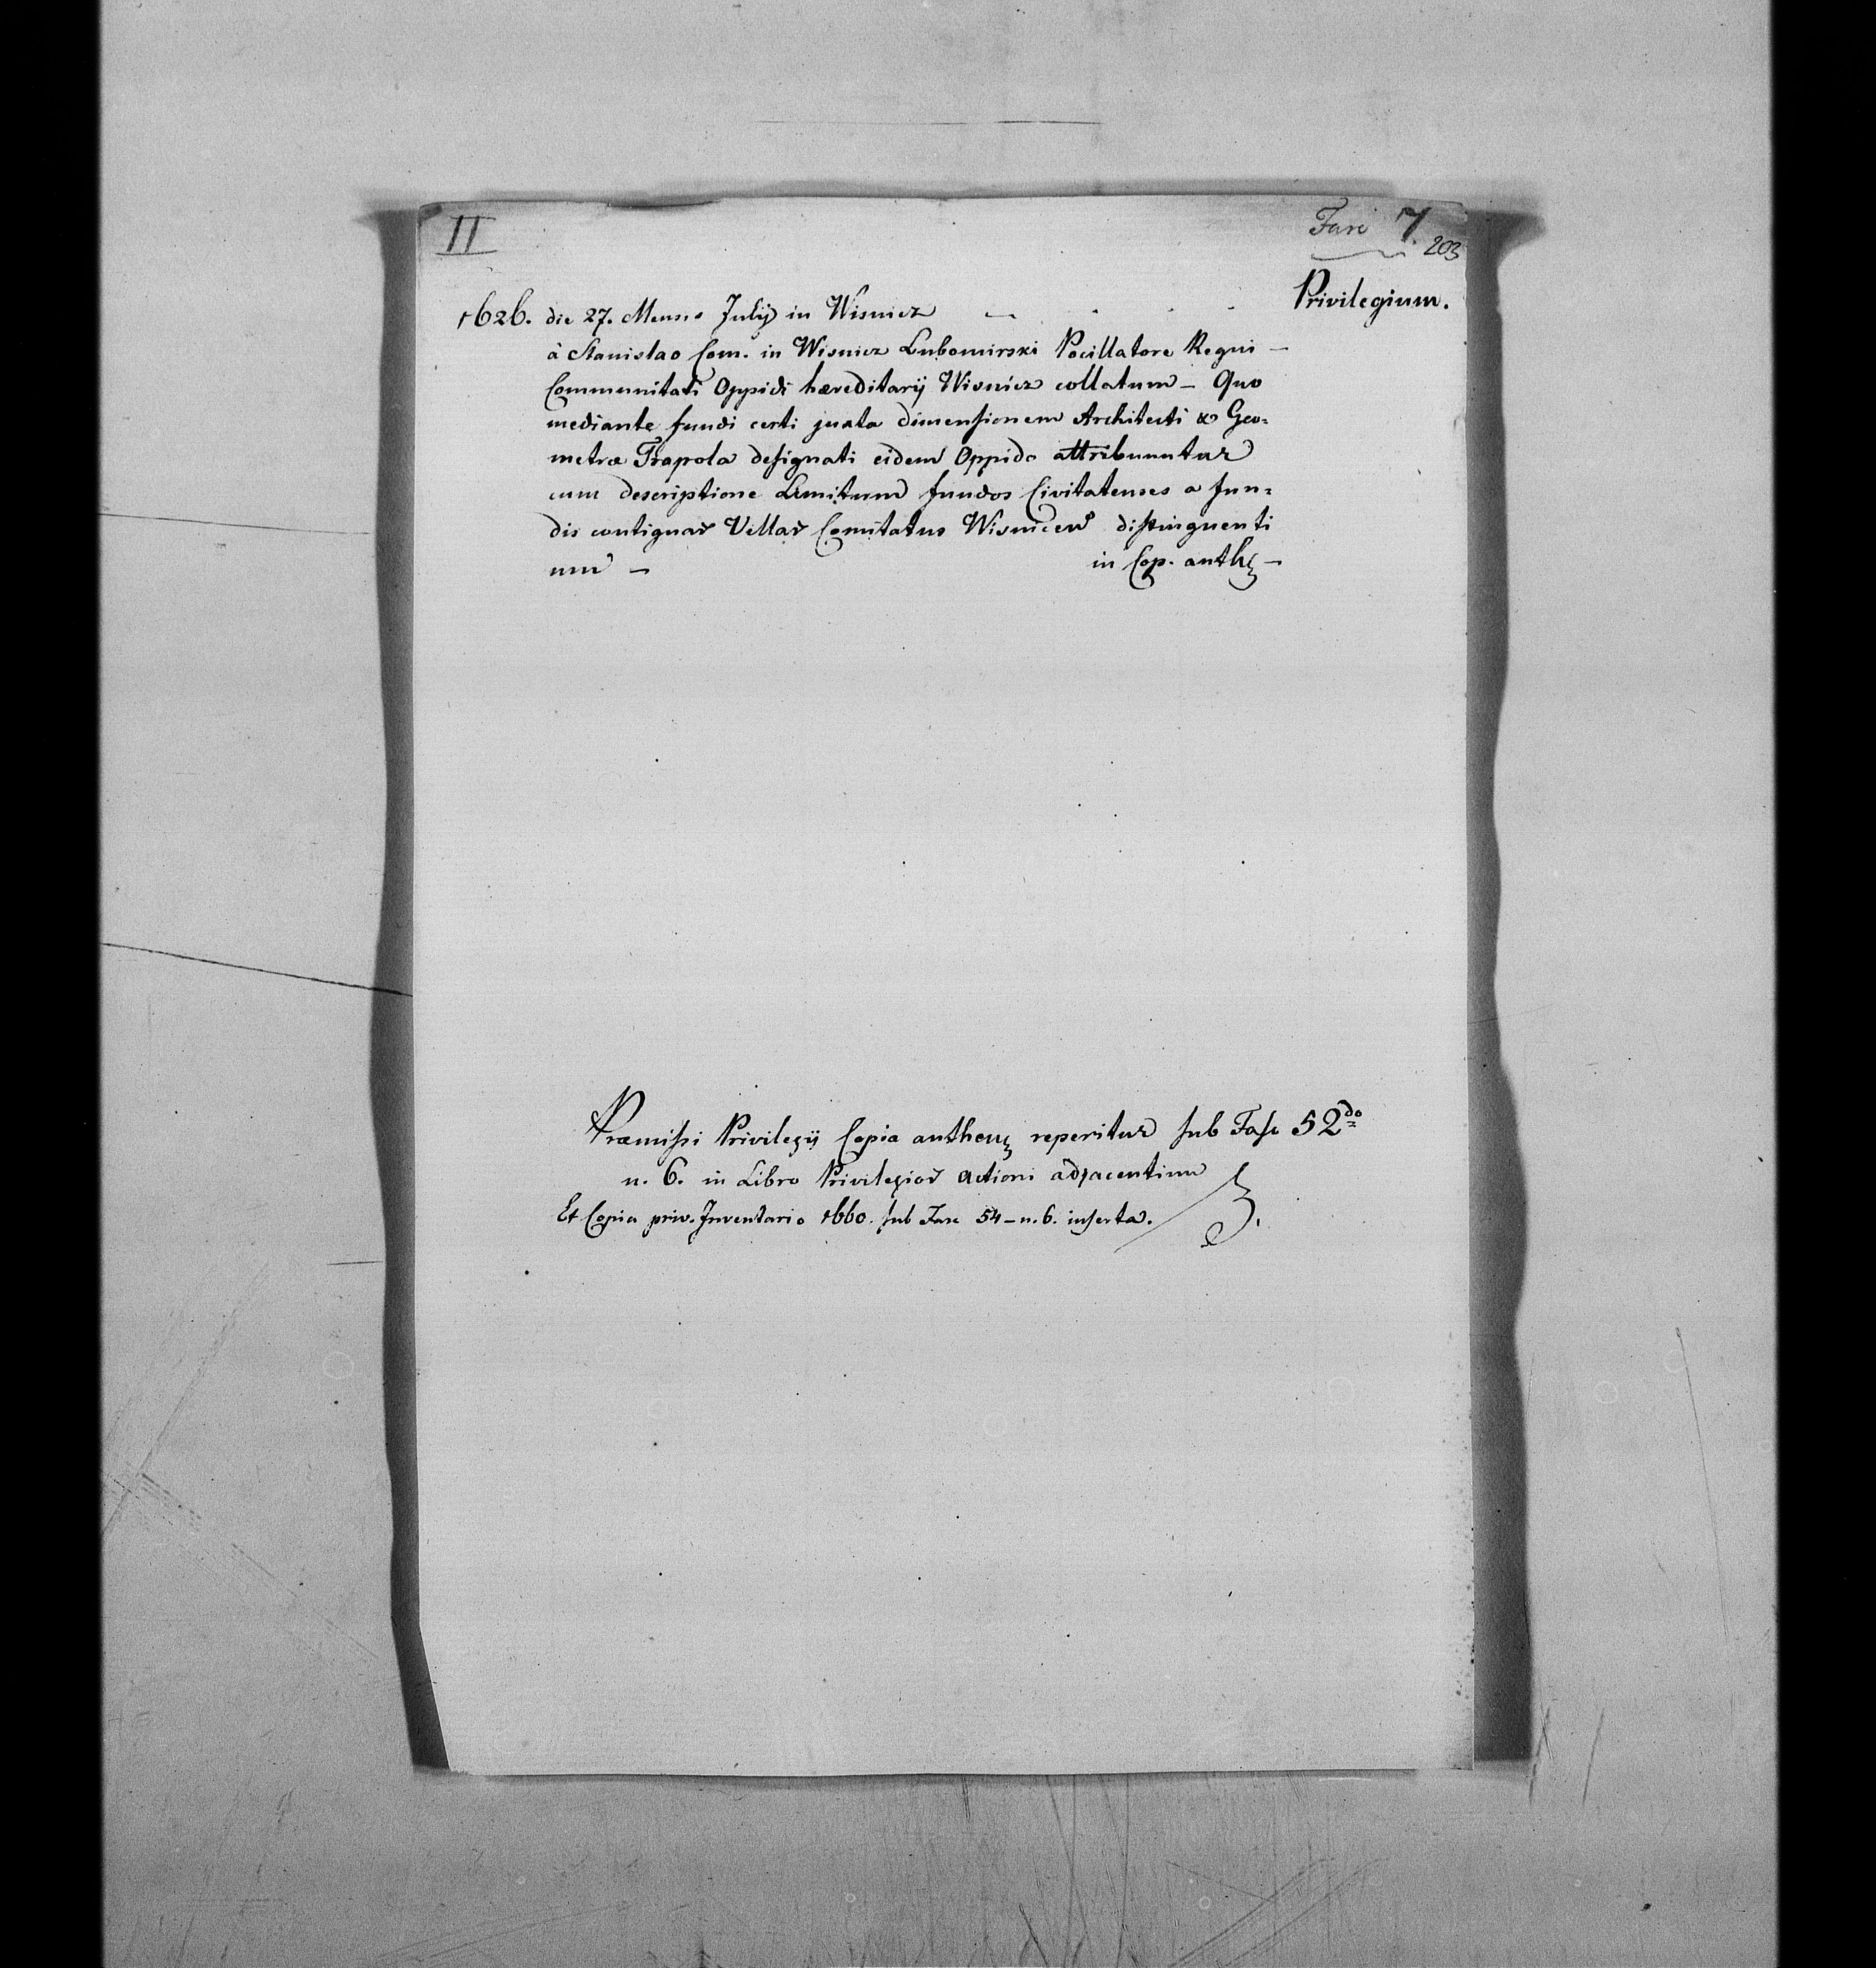 II
Fasc 7.
203
Privilegium.
1626. die 27. Mensis Julij in Wisnicz
à Stanislao Com. in Wisnicz Lubomirski Pocillatore Regni –
Communitati Oppidi hæreditarij Wisnicz collatum – Quo
mediante fundi certi juxta dimensionem Architecti & Geo=
metræ Trapola designati eidem Oppido attribuuntur
cum descriptione Limitum fundos Civitatenses a fun=
dis contiguar Villar Comitatus Wisnicen distinguenti
um – in Cop. auth –
Præmissi Privilegij Copia authen reperitur sub Fasc 52do
n. 6. in Libro Privilegior actioni adjacentium
Et Copia priv. Inventario 1660. sub Fasc 54 – n. 6. inserta.